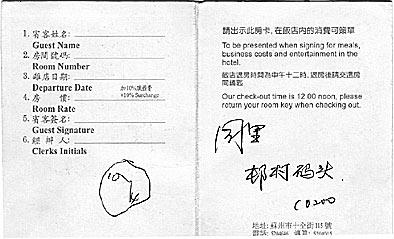 1. 賓客姓名:
Guest Name
2. 房間號碼:
Room Number
3. 離店日期:
Departure Date
加10%服務費
+10% Surcharge
4. 房 價:
Room Rate
5. 賓客簽名:
Guest Signature
6. 經辦人:
Clerks Initials
請出示此房卡, 在飯店内的消費可簽單
To be presented when signing for meals,
business costs and entertainment in the
hotel.
飯店退房時間為中午十二時, 退房後請交還房
間鑰匙
Our check-out time is 12:00 noon, please
return your room key when checking out.
同里
村码头
地址: 蘇州市十全街115號